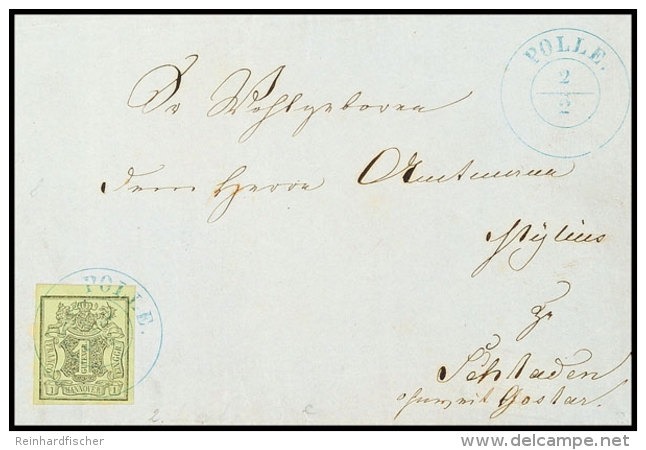 POLLE.
2
3
Sr Wohlgeboren
dem Herrn Amtmann
Mylius
zu
Schladen
ohnweit Goslar.
POLLE.
HANNOVER
1
1
2.
Reinhardfischer
delcampe.net